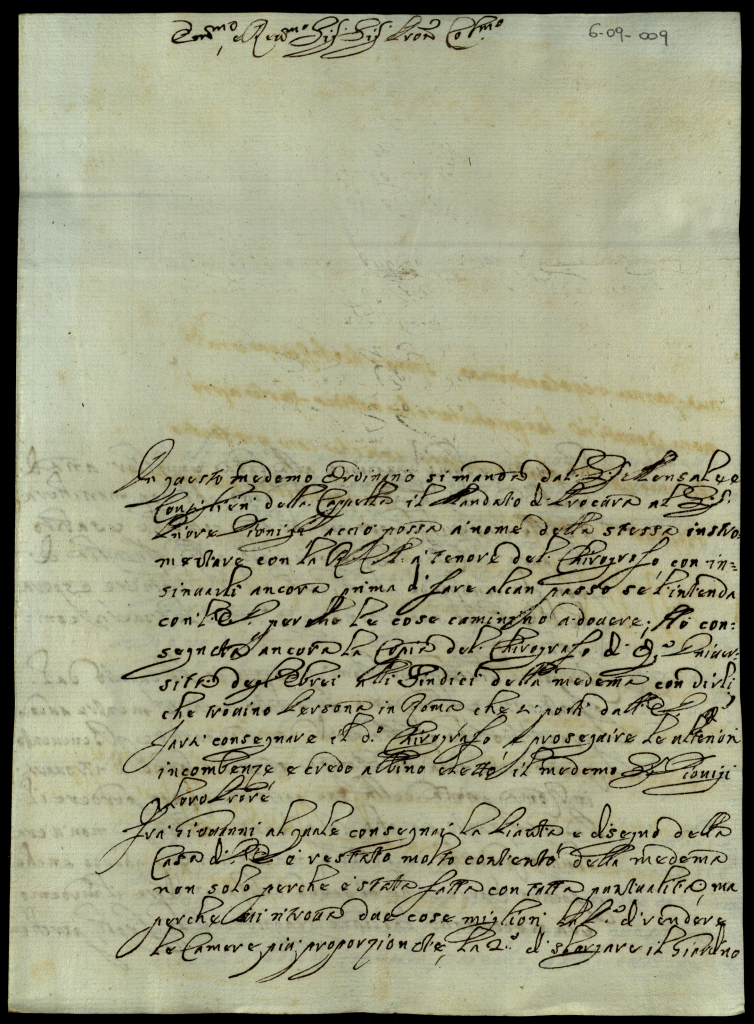 6-09-009
Em.mo e Rev.mo Sig. Sig. Pron. Col.mo
In questo medemo Ordinario si manda dal
Consiglieri della Cappella il Mandato di Procura al Sig.
acciò possa a nome della stessa instro-
mentare con la R. C. A. a tenore del Chirografo, con in-
sinuarli ancora prima di fare alcun passo se l'intenda
con l'E. S. perche le cose caminino a dovere; Hò con-
segnata ancora la Copia del Chirografo di q.a Univer-
sità degl'Ebrei alli Giudici della medema con dirli
che trovino Persona in Roma che si porti dall'E. S.
farsi consegnare il d.o Chirografo e proseguire le ulteriori
incombenze e credo abbino eletto il medemo Dionigi
p loro Prore
Frà Giovanni al quale consegnai la Pianta e disegno della
Casa di è restato molto contento della medema
non solo perche è stata fatta con tutta puntualità, ma
perche vi ritrova due cose migliori, la p.a di rendere
le Camere più proporzionate, la 2.a di slargare il Giardino